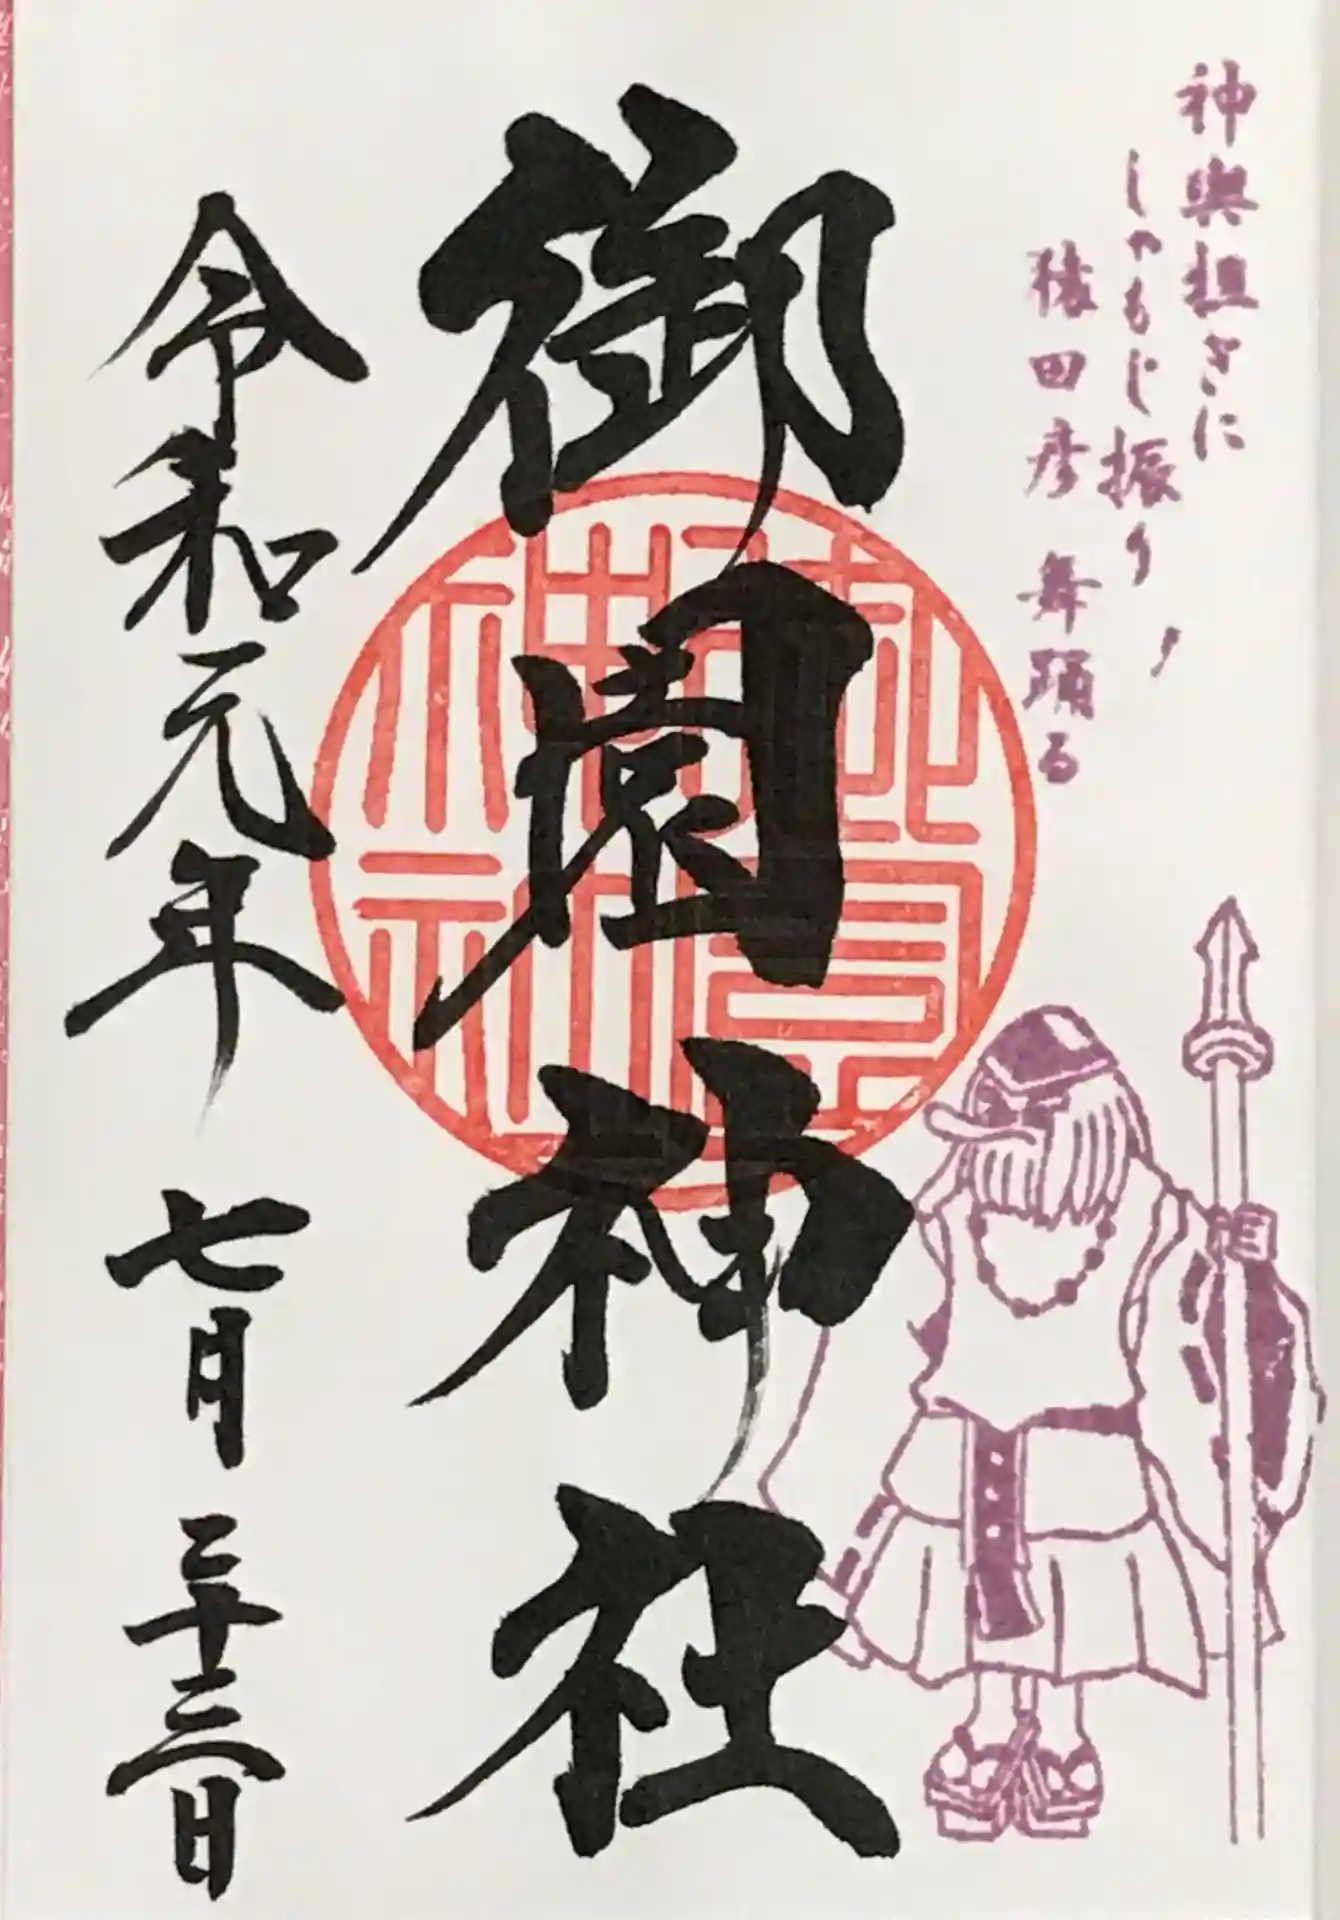 神輿担ぎに
しゃもじ振り
猿田彦舞踊る
御園神社
令和元年 七月 二十三日